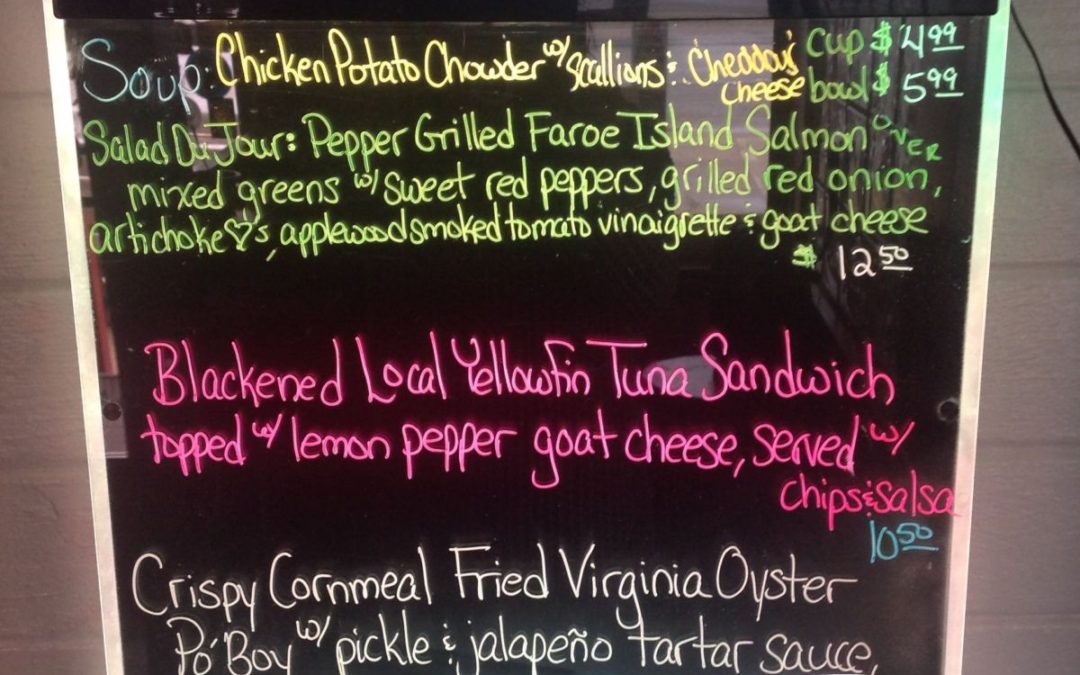 Soup: Chicken Potato Chowder w/ scallions & Cheddar cheese cup $4.99
bowl $5.99
Salad Du Jour: Pepper Grilled Faroe Island Salmon OVER
mixed greens w/ sweet red peppers, grilled red onion,
artichoke♡s, applewood smoked tomato vinaigrette & goat cheese
$12.50
Blackened Local Yellowfin Tuna Sandwich
topped w/ lemon pepper goat cheese, served w/
chips & salsa
10.50
Crispy Cornmeal Fried Virginia Oyster
Po'Boy w/ pickle & jalapeño tartar sauce,